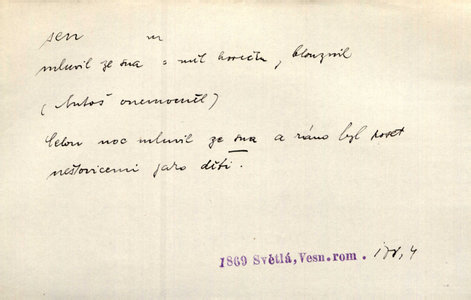 sen m
mluvil ze sna = měl horečku, blouznil
(Antoš onemocněl)
Celou noc mluvil ze sna a ráno byl
neštovicemi jako děti.
1869 Světlá, Vesn.rom. 4